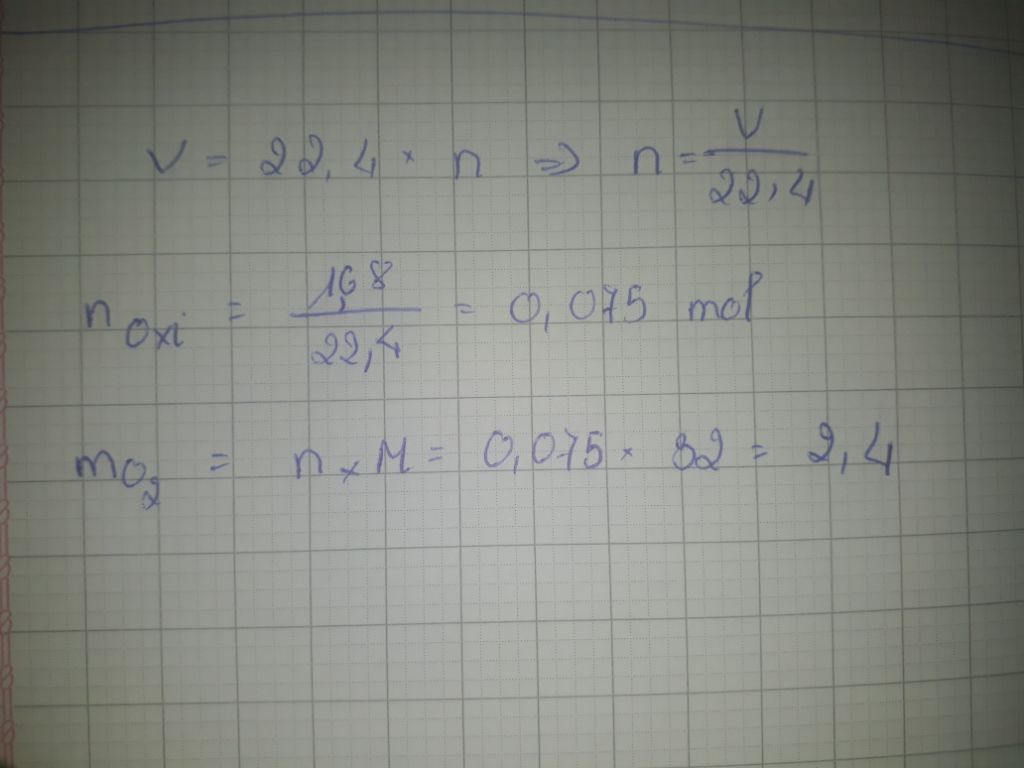 V = 22,4 × n ⇒ n = V/22,4
n oxi = 1,68/22,4 = 0,075 mol
mO₂ = n × M = 0,075 × 32 = 2,4